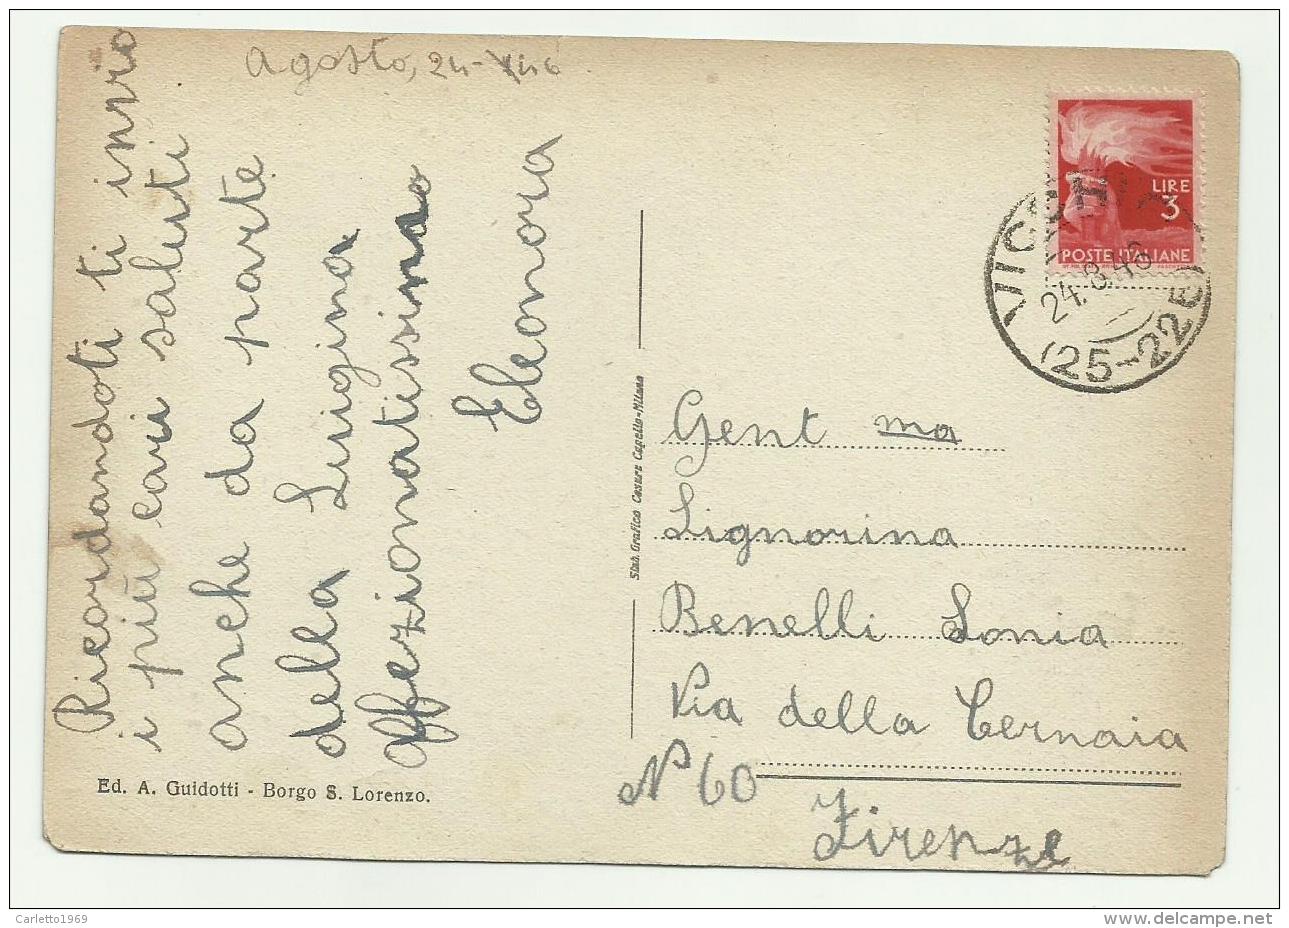 Agosto, 24-46
Ricordandoti ti invio
i più cari saluti
anche da parte
della Luigina
affezionatissima
Eleonora
Ed. A. Guidotti - Borgo S. Lorenzo.
Stab. Grafico Cesare Capello-Milano
LIRE
3
POSTE ITALIANE
VICCHIO
24.8.46
(25-22E)
Gent ma
Signorina
Benelli Sonia
Via della Cernaia
N° 60
Firenze
Carletto1969
delcampe.net